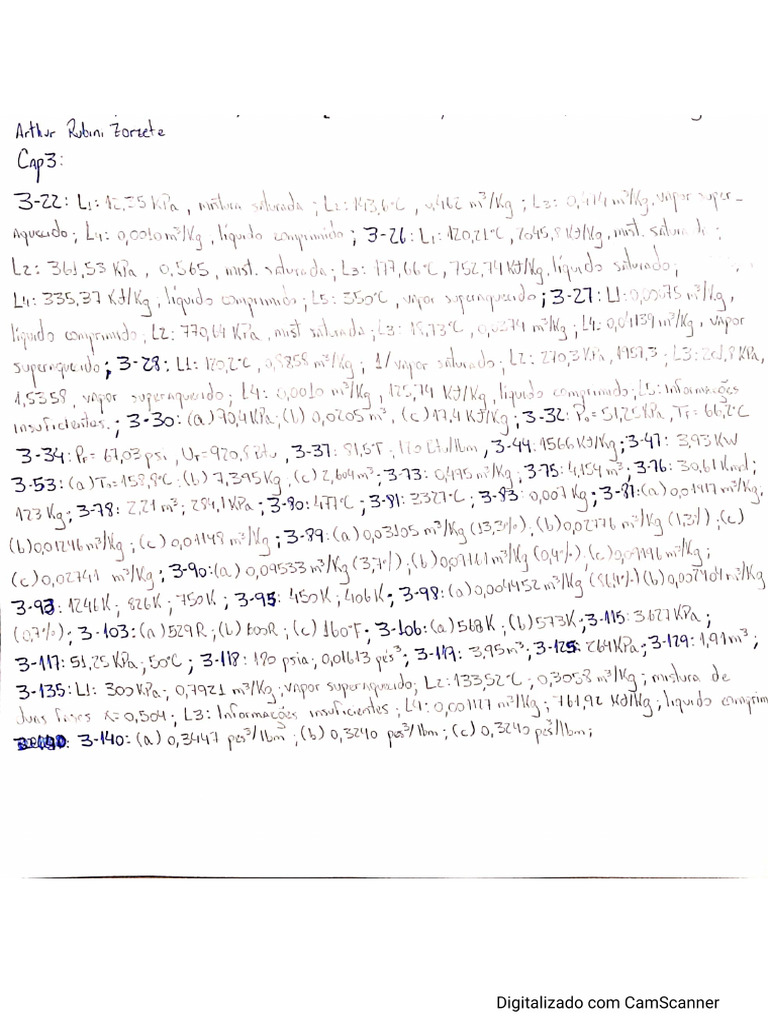 Arthur Rubini Zorzete
Cap3:
3-22: L1: 12,35 KPa, mistura saturada; L2: 143,6°C, 0,462 m³/Kg; L3: 0,474 m³/Kg, vapor super-
aquecido; L4: 0,0010 m³/Kg, líquido comprimido; 3-26: L1: 120,21°C, 2045,8 KJ/Kg, mist. saturada;
L2: 361,53 KPa, 0,565, mist. saturada; L3: 177,66°C, 752,74 KJ/Kg, líquido saturado;
L4: 335,37 KJ/Kg, líquido comprimido; L5: 350°C, vapor superaquecido; 3-27: L1: m³/Kg,
líquido comprimido; L2: 770,64 KPa, mist saturada; L3: 18,73°C, 0,0274 m³/Kg; L4: 0,04139 m³/Kg, vapor
superaquecido; 3-28: L1: 120,2°C, 0,8858 m³/Kg; 1/vapor saturado; L2: 270,3 KPa, 1957,3; L3: 201,8 KPa,
1,5358, vapor superaquecido; L4: 0,0010 m³/Kg, 125,74 KJ/Kg, líquido comprimido; L5: Informações
insuficientes.; 3-30: (a) 70,4 KPa; (b) 0,0205 m³, (c) 17,4 KJ/Kg; 3-32: 51,25 KPa, 66,2°C
3-34: 67,03 psi, 920,8 Btu, 3-37: 81,5 T, 120 Btu/lbm, 3-44: 1566 KJ/Kg; 3-47: 3,93 KW
3-53: (a) 158,8°C; (b) 7,395 Kg; (c) 2,604 m³; 3-73: 0,475 m³/Kg; 3-75: 4,154 m³; 3-76: 30,61 Kmol;
123 Kg; 3-78: 2,21 m³; 284,1 KPa; 3-80: 477°C; 3-81: 3327°C; 3-83: 0,007 Kg; 3-87: (a) 0,01917 m³/Kg,
(b) 0,01246 m³/Kg; (c) 0,01148 m³/Kg; 3-89: (a) 0,03105 m³/Kg (13,3%), (b) 0,02776 m³/Kg (1,3%); (c)
(c) 0,02741 m³/Kg; 3-90: (a) 0,09533 m³/Kg (3,7%); (b) 0,09161 m³/Kg (0,4%), (c) 0,09196 m³/Kg;
3-93: 1246 K; 826 K; 750 K; 3-95: 450 K; 406 K; 3-98: (a) 0,004452 m³/Kg (86,4%) (b) 0,002404 m³/Kg
(0,7%); 3-103: (a) 529 R; (b) 600 R; (c) 160°F; 3-106: (a) 568 K, (b) 573 K; 3-115: 3627 KPa;
3-117: 51,25 KPa; 50°C; 3-118: 180 psia; 0,01613 pés³; 3-119: 3,95 m³; 3-125: 264 KPa; 3-129: 1,91 m³;
3-135: L1: 300 KPa; 0,7921 m³/Kg; vapor superaquecido; L2: 133,52°C; 0,3058 m³/Kg; mistura de
duas fases x=0,504; L3: Informações insuficientes; L4: 0,001127 m³/Kg; 761,92 KJ/Kg; líquido comprim
3-140: (a) 0,3447 pés³/lbm; (b) 0,3240 pés³/lbm; (c) 0,3240 pés³/lbm;
Digitalizado com CamScanner